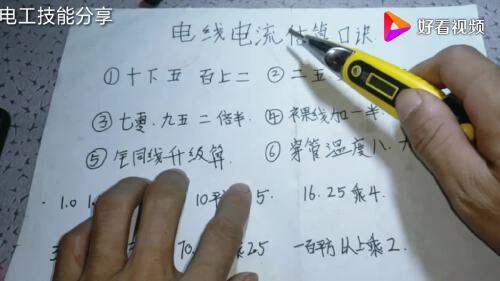 电工技能分享
好看视频
电线电流估算口诀
①十下五 百上二 ②二五
③七零.九五 二倍半. ④裸线加一半.
⑤铜线升级算. ⑥穿管温度八.
1.0 10平 5. 16.25乘4.
70. 乘2.5 一百平方以上乘2.